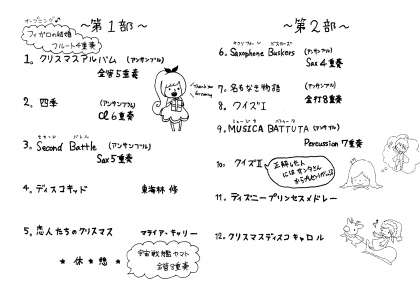 ～第1部～
オープニング♪
フィガロの結婚
フルート4重奏
1. クリスマスアルバム (アンサンブル)
金管5重奏
2. 四季 (アンサンブル)
Cl 6重奏
Thank you
for coming
3. Second Battle (アンサンブル)
セカンド バトル
Sax 5重奏
4. ディスコキッド 東海林 修
5. 恋人たちのクリスマス マライア・キャリー
★ 休★憩 ★
宇宙戦艦ヤマト
金管8重奏
～第2部～
6. Saxophone Buskers (アンサンブル)
Sax 4重奏
7. 名もなき物語 (アンサンブル)
金打8重奏
8. クイズI
9. MUSICA BATTUTA (アンサンブル)
ムージカ バトゥータ
Percussion 7重奏
10. クイズII
正解した人
にはサンタさん
11. ディズニープリンセスメドレー
12. クリスマスディスコキャロル